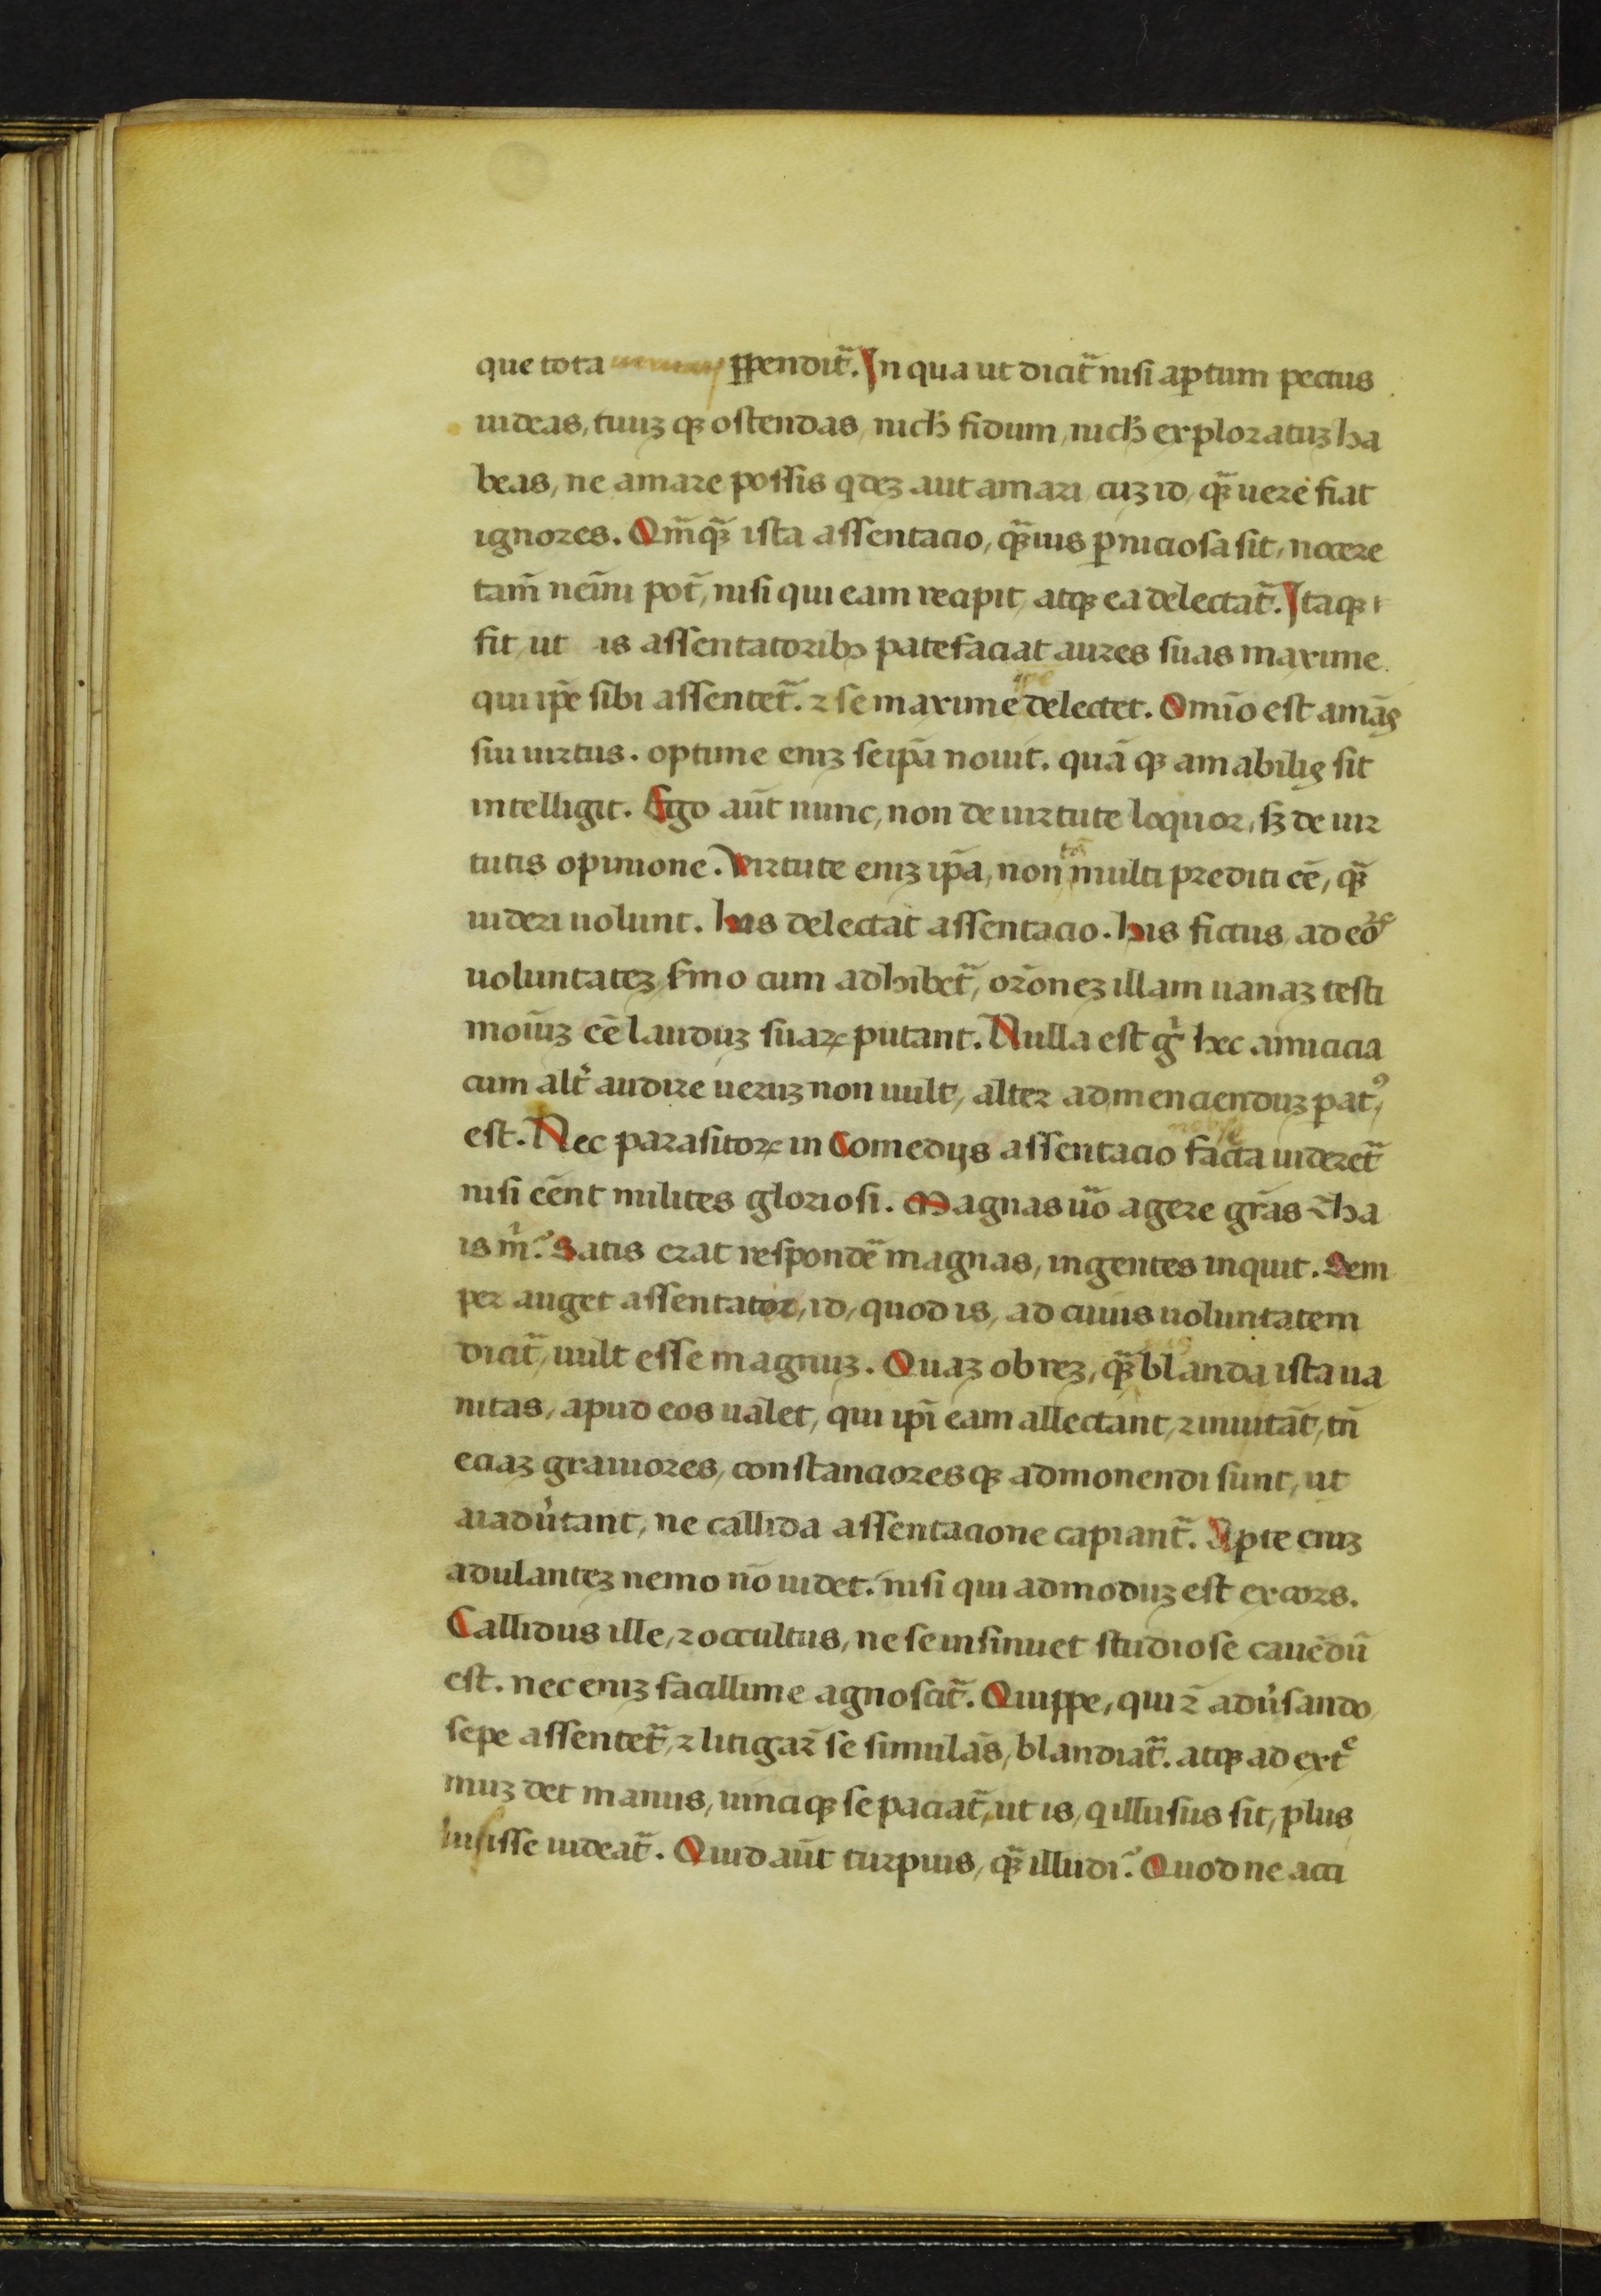 que tota ꝑpendit᷑. In qua ut dicit᷑ nisi aptum pectus
uideas, tuuꝫ qꝫ ostendas, nich̄ fidum, nich̄ exploratuꝫ ha
beas, ne amare possis qdeꝫ aut amari cuꝫ id, qꝫ̃ uere fiat
ignores. Qm̄qꝫ̃ ista assentacio, qꝫ̃uis ꝑniciosa sit, nocere
tam̄ nemī pot̄, nisi qui eam recipit, atqꝫ ea delectat᷑. Itaqꝫ
fit, ut is assentatoribꝫ patefaciat aures suas maxime
qui ip̄e sibi assentet᷑. ⁊ se maxime ip̄e delectet. Omīo est amās
sui uirtus. optime eniꝫ seip̄ā nouit. quā qꝫ amabilis sit
intelligit. Ego aūt nunc, non de uirtute loquor, sꝫ de uir
tutis opinione. Virtute eniꝫ ip̄a, non tā multi prediti eē, qꝫ̃
uideri uolunt. his delectāt assentacio. his fictus, ad eoꝝ
uoluntateꝫ s̄mo cum adhibet᷑, or̄oneꝫ illam uanaꝫ testi
moiūꝫ eē lauduꝫ suaꝝ putant. Nulla est gͥ hec amicicia
cum alt̓ audire ueruꝫ non uult, alter ad menciendūꝫ patꝰ
est. Nec parasitoꝝ in Comedijs assentacio faceta nobis uideret᷑
nisi eēnt milites gloriosi. Magnas ūo agere grās t̄ha
is m̓? Satis erat respondē magnas, ingentes inquit. Sem
per auget assentator, id, quod is, ad cuius uoluntatem
dicit᷑, uult esse magnuꝫ. Quaꝫ ob reꝫ, qꝫ̃uis blanda ista ua
nitas, apud eos ualet, qui ip̄i eam allectant, ⁊ inuitāt, tn̄
eciaꝫ grauiores, constancioresqꝫ admonendi sunt, ut
aiadu̓tant, ne callida assentacione capiant᷑. Apte eniꝫ
adulanteꝫ nemo nō uidet. nisi qui admoduꝫ est excors.
Callidus ille, ⁊ occultus, ne se insinuet studiose cauēdū
est. nec eniꝫ facillime agnoscit᷑. Quippe, qui ⁊̄ adu̓sando
sepe assentet᷑, ⁊ litigar̄ se simulās, blandiat᷑. atqꝫ ad extᵉ
muꝫ det manus, uinciqꝫ se paciat᷑, ut is, q illusus sit, plus
uisisse uideat᷑. Quid aūt turpius, qꝫ̃ illudi? Quod ne acci